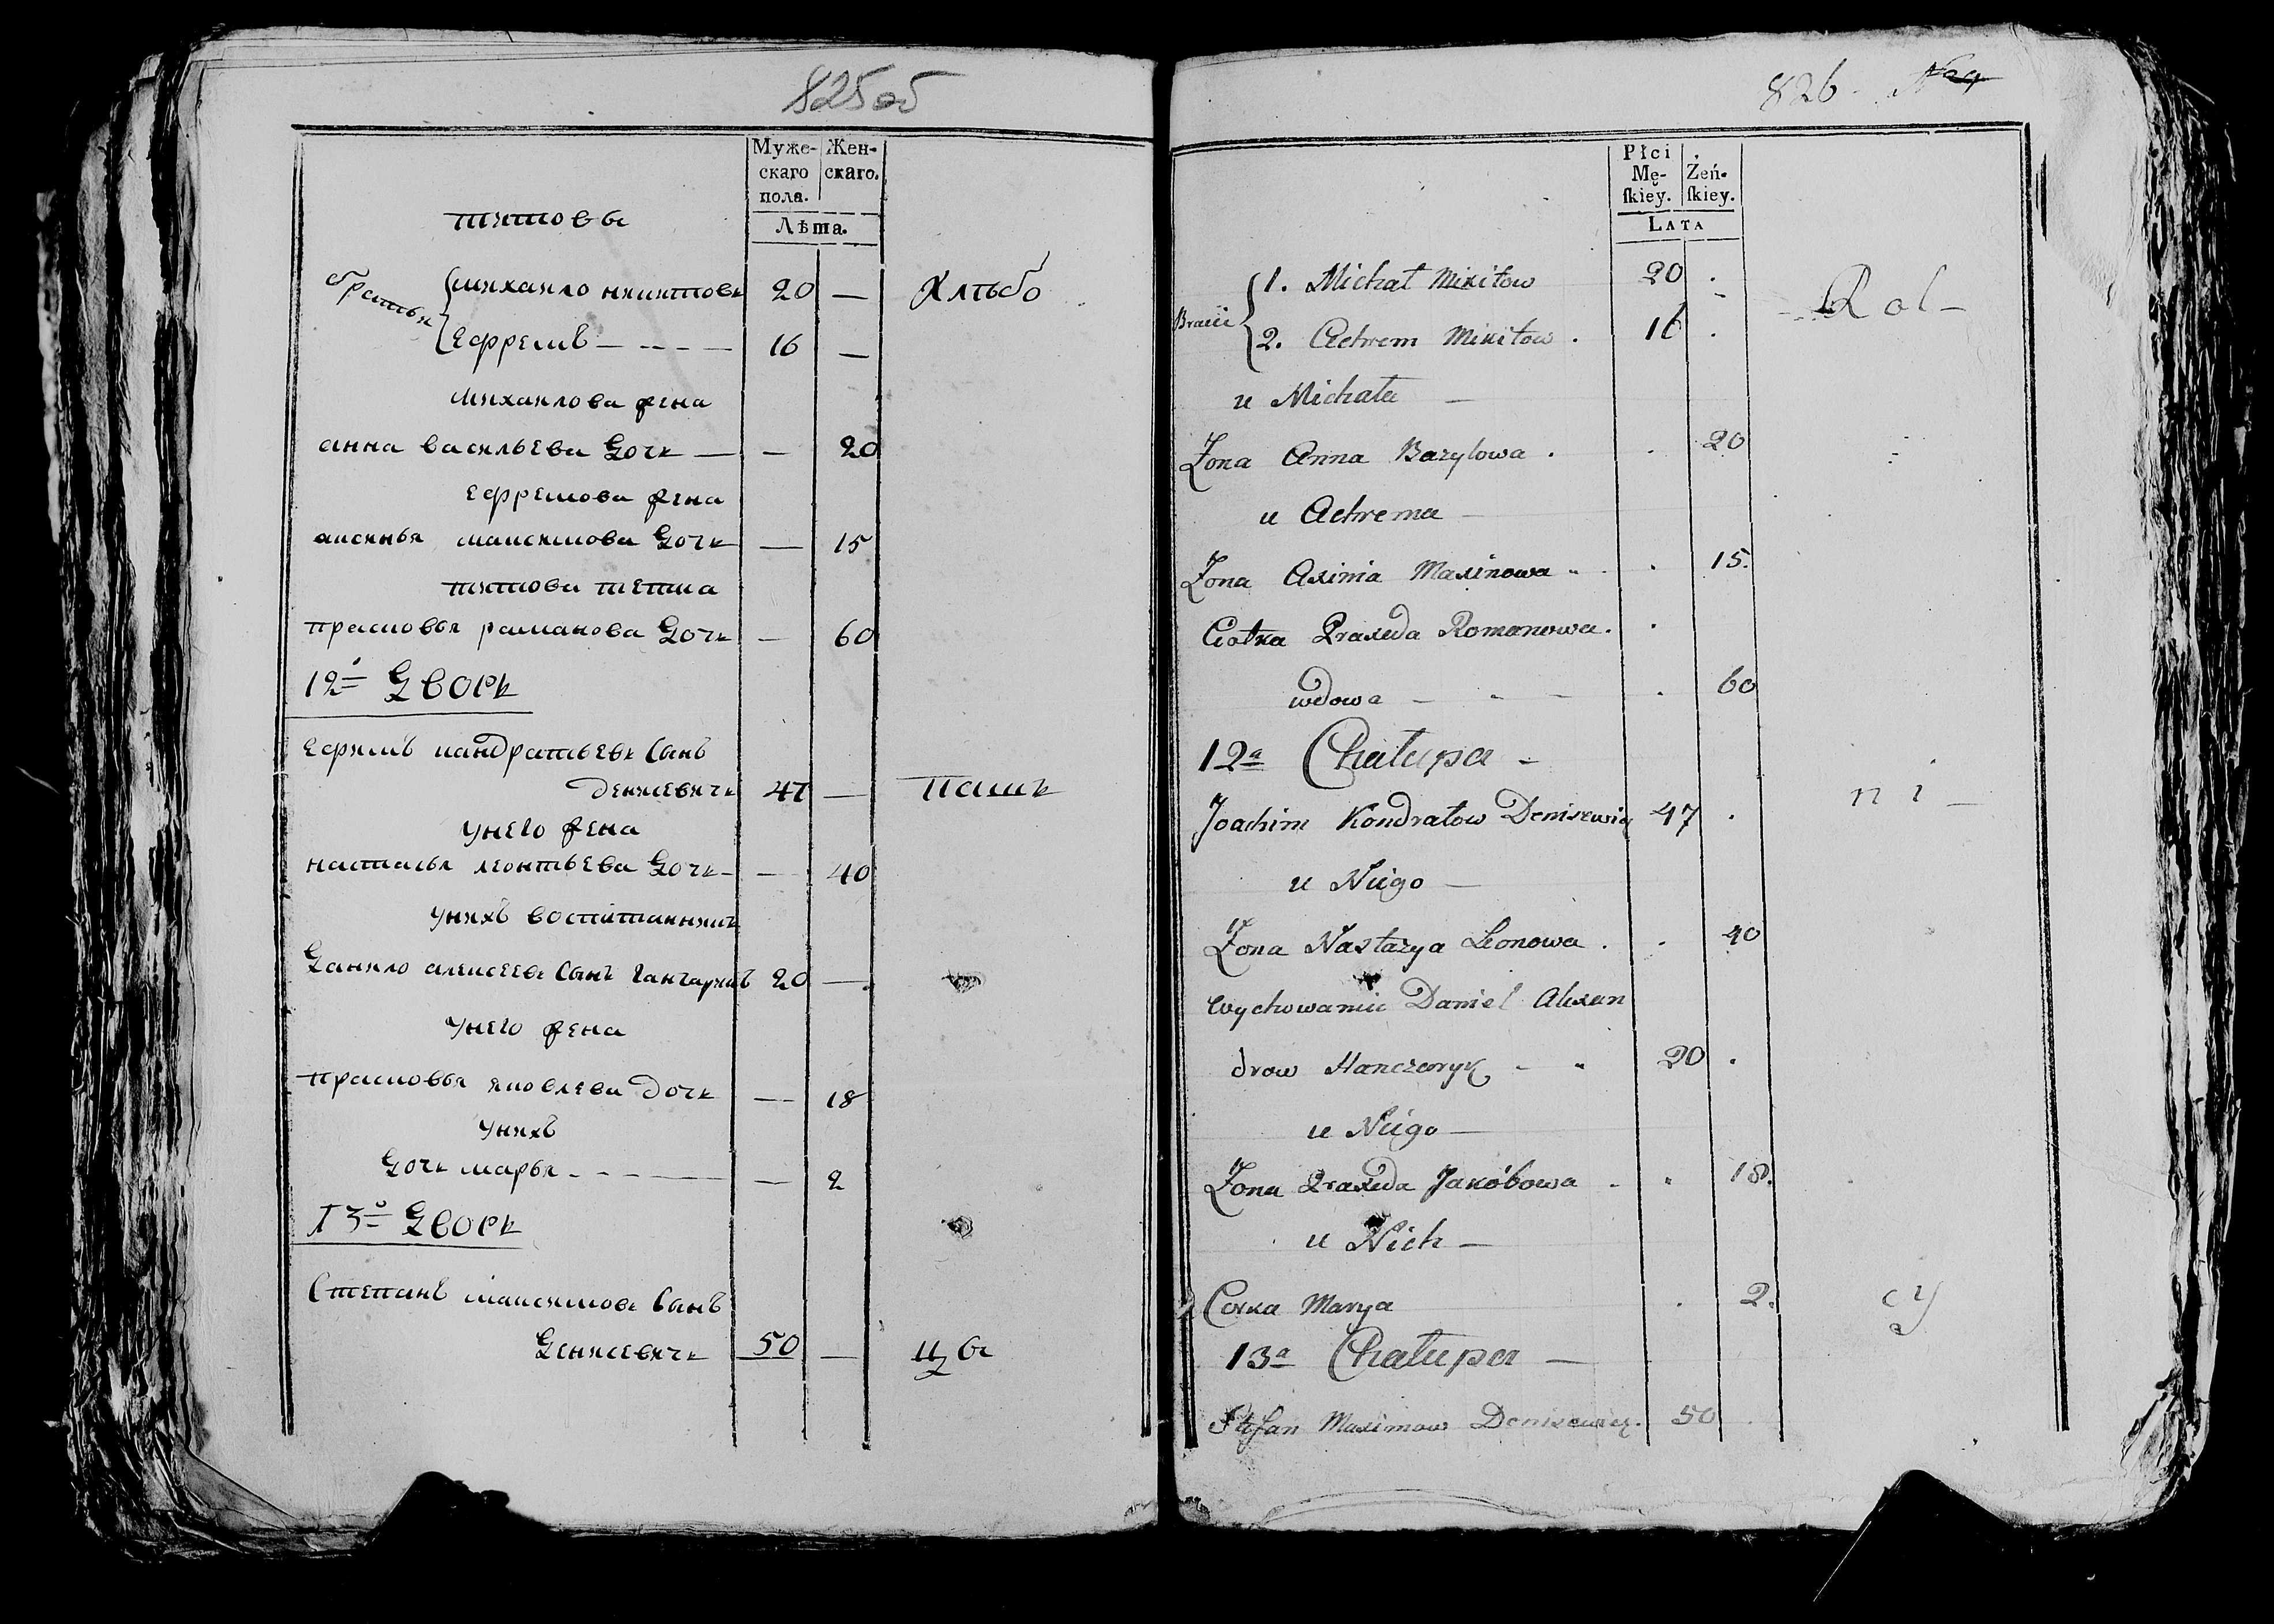 825об
Муже-
скаго
пола.
Жен-
скаго.
Лѣта.
титовы
братья
михаило никитовъ 20 — Хлѣбо
Ефремъ — 16 —
михаилова жена
анна васильева дочь — — 20
ефремова жена
аксинья максимова дочь — 15
титова тетка
прасковья раманова дочь — 60
12й дворъ
Ефимъ кандратьевъ сынъ
денисевичъ 47 — паш
унего жена
настасья леонтьева дочь — — 40
унихъ воспитанникъ
Данило алексеевъ сынъ ганчарикъ 20 —
унего жена
прасковья яковлева дочь — 18
унихъ
дочь марья — — 2
13й дворъ
Степанъ максимовъ сынъ
Денисевичъ 50 — цы
826
Płci
Mę-
ſkiey.
Żeń-
ſkiey.
LATA
Bracii
1. Michał Mikitow 20 . Rol-
2. Achrem Mikitow . 16 .
u Michała —
Zona Anna Bazylowa . . 20
u Achrema —
Zona Axinia Maximowa . 15.
Ciotka Praxeda Romanowa. .
wdowa — . 60
12a Chałupa -
Joachim Kondratow Denisewicz 47 . ni —
u Niego —
Zona Nastazya Leonowa . . 40
Wychowaniec Daniel Alexan
drow Hanczaryk - 20 .
u Niego —
Zona Praxeda Jakóbowa . 18.
u Nich —
Corka Marya . 2. cy
13a Chałupa —
Stefan Maximow Denisewicz. 50 .